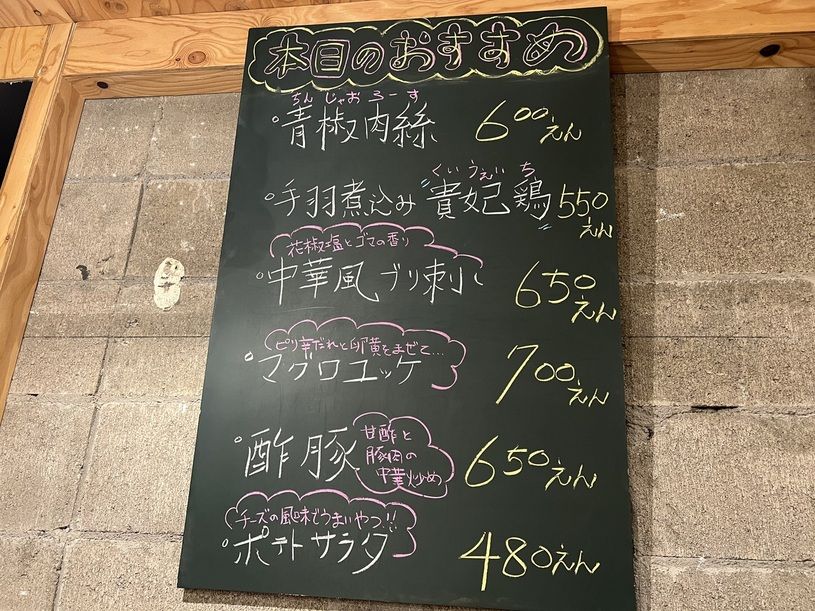 本日のおすすめ
ちんじゃおろーす
。青椒肉絲 600えん
くいうぇいち
。手羽煮込み "貴妃鶏" 550えん
花椒塩とゴマの香り
。中華風ブリ刺し 650えん
ピリ辛だれと卵黄をまぜて…
。マグロユッケ 700えん
。酢豚 650えん
甘酢と
豚肉の
中華炒め
チーズの風味でうまいやつ!!
。ポテトサラダ 480えん